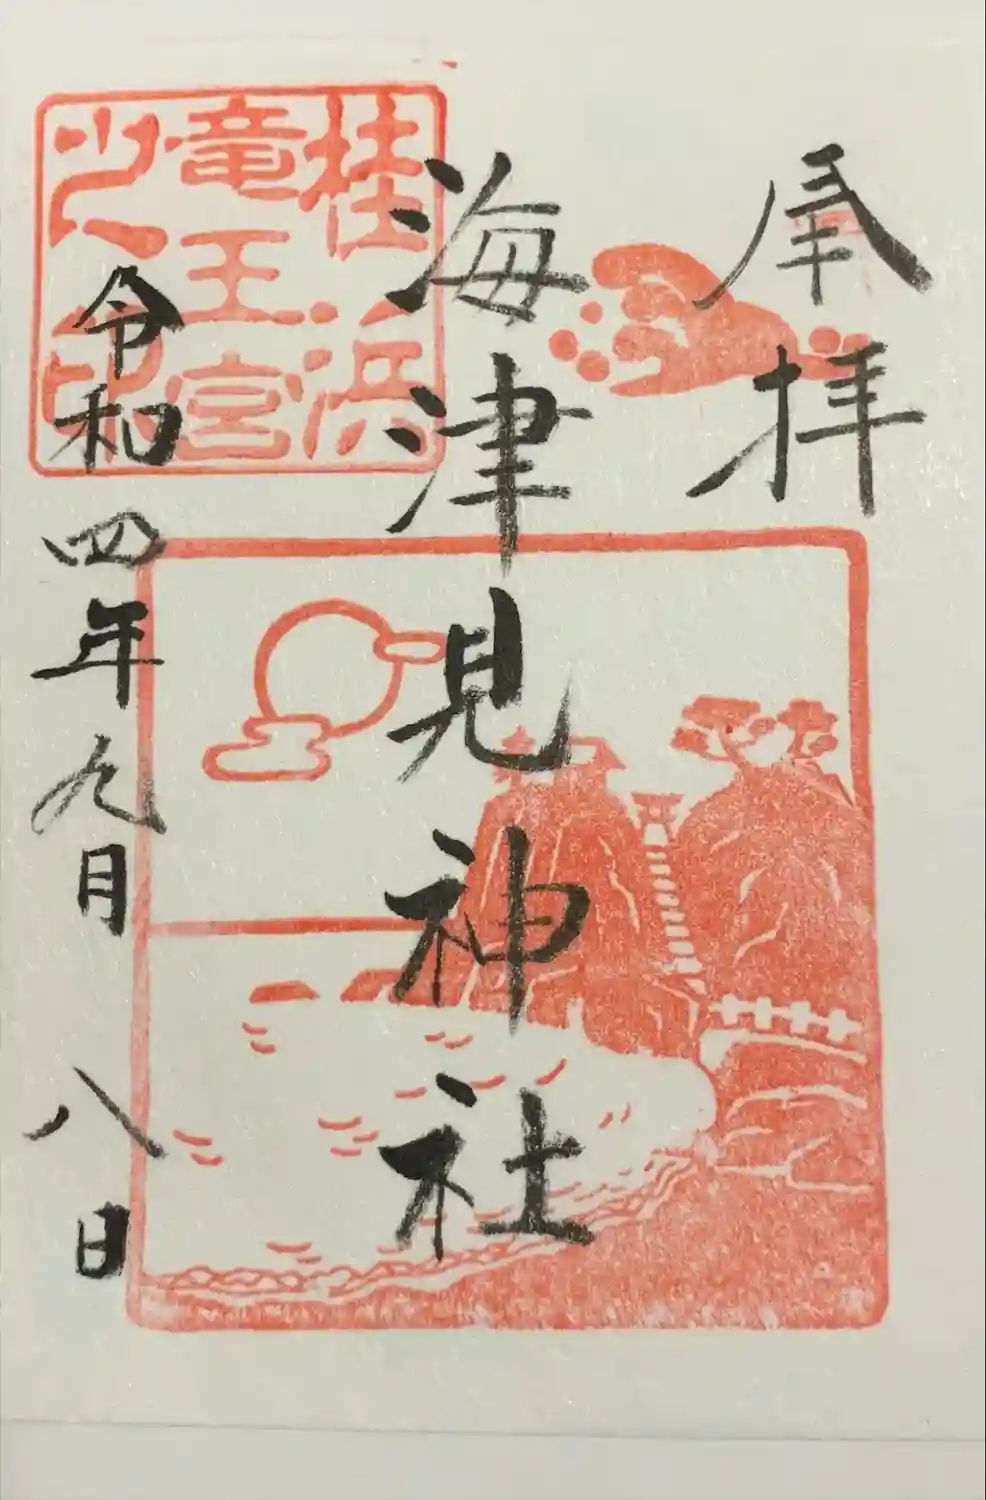 奉拝
海津見神社
桂浜
竜王宮
之印
令和四年九月八日